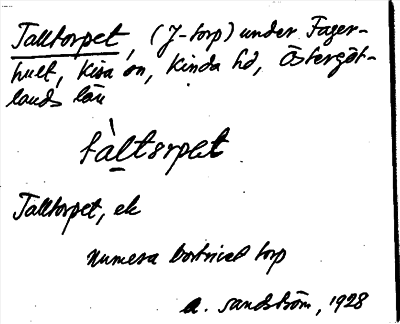 Talltorpet, (J-torp) under Fager-
hult, Kisa sn, Kinda hd, Östergöt-
lands län
tàltorpet
Talltorpet, ek
Numera bortrivet torp
A. Sandström, 1928